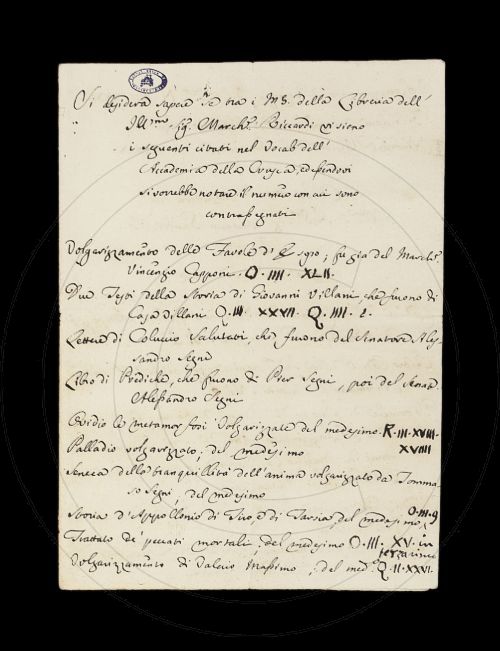 Si desidera sapere se tra i MS. della Libreria dell'
Ill.mo sig. March.e Riccardi vi sieno
i seguenti citati nel Vocab. dell'
Accademia della Crusca, ed essendovi
si vorrebbe notare il numero con cui sono
contrassegnati
Volgarizzamento delle Favole d'Esopo; fu già del March.e
Vincenzio Capponi. O. IIII. XLII.
Due Testi della Storia di Giovanni Villani, che furono di
Casa Villani Q. III. XXVII. Q. IIII. 2.
Lettere di Coluccio Salutati, che furono del Senatore Ales-
sandro Segni
Libro di Prediche, che furono di Pier Segni, poi del Senat.
Alessandro Segni
Ovidio le metamorfosi Volgarizzate del medesimo. R. III. XVIII.
Palladio volgarizzato; del medesimo XVIIII
Seneca della tranquillità dell'anima volgarizzato da Tomma-
so Segni, del medesimo
Storia d'Appollonio di Tiro, e di Tarsia del medesimo, O. III. 9
Trattato de' peccati mortali, del medesimo O. III. XV. in
terzarime
Volgarizzamento di Valerio Massimo; del med.o Q. II. XXVI.